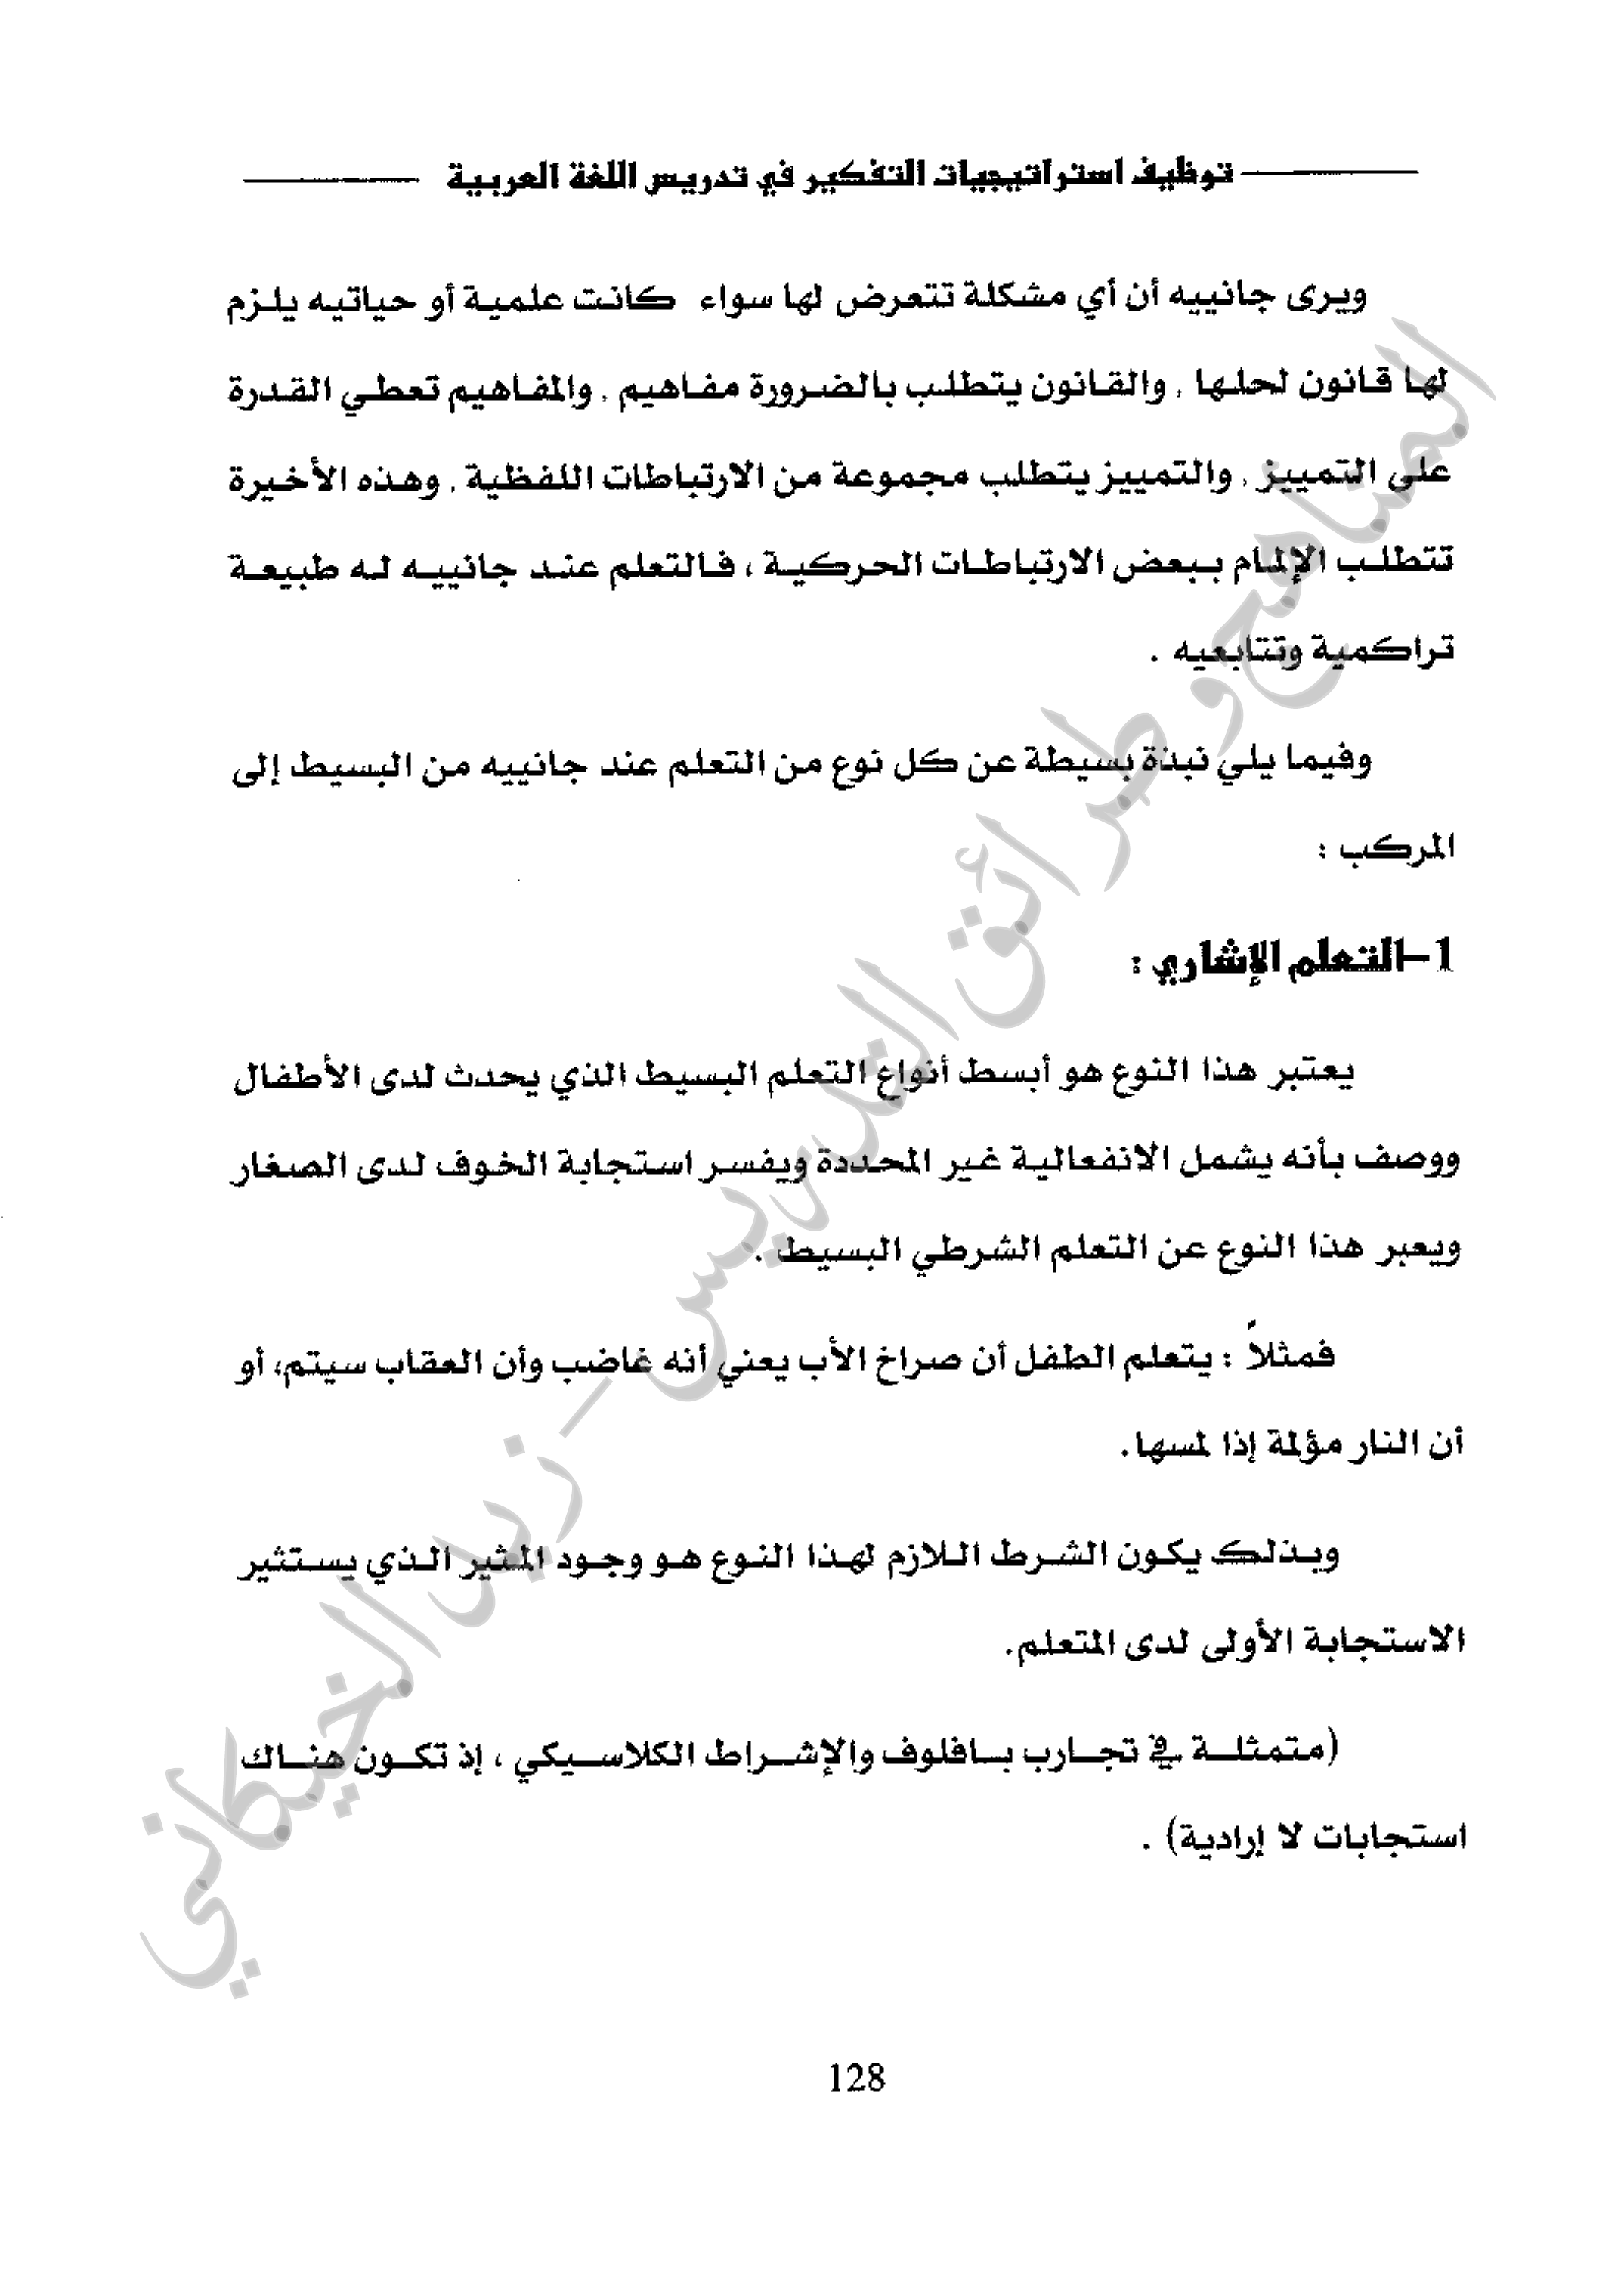 توظيف استراتيجيات التفكير في تدريس اللغة العربية
ويرى جانييه أن أي مشكلة تتعرض لها سواء كانت علمية أو حياتيه يلزم
لها قانون لحلها , والقانون يتطلب بالضرورة مفاهيم , والمفاهيم تعطي القدرة
على التمييز , والتمييز يتطلب مجموعة من الارتباطات اللفظية , وهذه الأخيرة
تتطلب الإلمام ببعض الارتباطات الحركية ، فالتعلم عند جانييه له طبيعة
تراكمية وتتابعيه .
وفيما يلي نبذة بسيطة عن كل نوع من التعلم عند جانييه من البسيط إلى
المركب :
1-التعلم الإشاري :
يعتبر هذا النوع هو أبسط أنواع التعلم البسيط الذي يحدث لدى الأطفال
ووصف بأنه يشمل الانفعالية غير المحددة ويفسر استجابة الخوف لدى الصغار
ويعبر هذا النوع عن التعلم الشرطي البسيط .
فمثلاً : يتعلم الطفل أن صراخ الأب يعني أنه غاضب وأن العقاب سيتم، أو
أن النار مؤلمة إذا لمسها.
وبذلك يكون الشرط اللازم لهذا النوع هو وجود المثير الذي يستثير
الاستجابة الأولى لدى المتعلم.
(متمثلة في تجارب بافلوف والإشراط الكلاسيكي ، إذ تكون هناك
استجابات لا إرادية) .
128
المناهج وطرائق التدريس - زيد الخيكاني